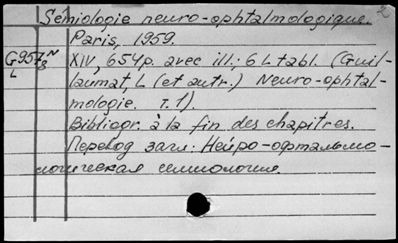 2
Semiologie neuro-ophtalmologique.
Paris, 1959.
G957 N XIV, 654p. avec ill.; 6 L tabl. (Guil-
L laumat, L (et autr.) Neuro-ophtal-
mologie. т. 1).
Bibliogr. à la fin des chapitres.
Перевод загл.: Нейро-офтальмо-
логическая семиология.